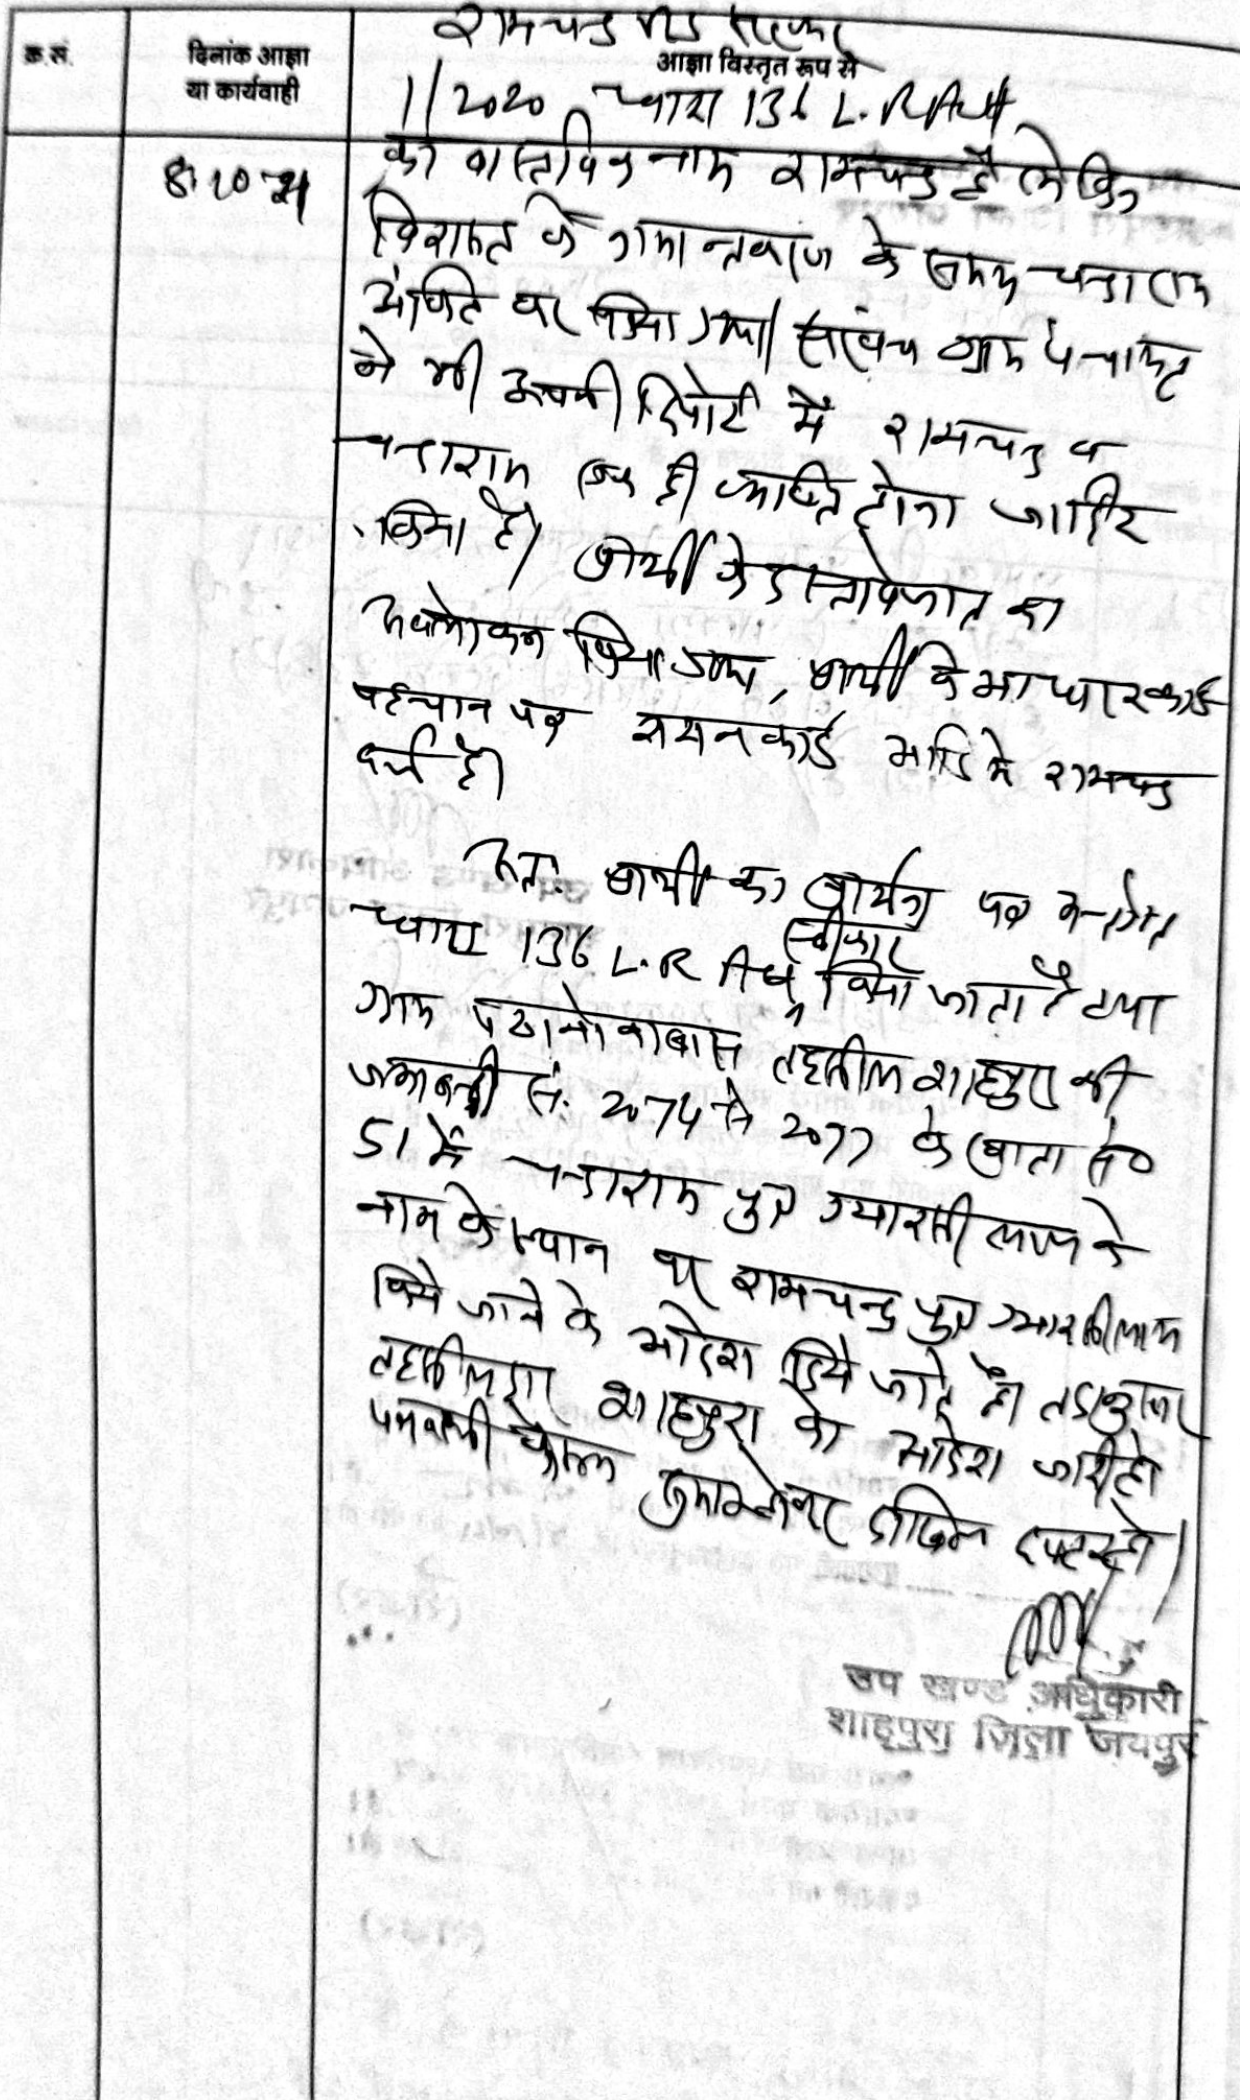 रामचन्द्र सरकार
क्र.सं.
दिनांक आज्ञा
या कार्यवाही
आज्ञा विस्तृत रूप से
1/2020 धारा 136 L.R Act
8.10.21
का वास्तविक नाम रामचन्द्र है लेकिन
विरासत के नामान्तकरण के समय चन्दाराम
अंकित कर दिया गया। सरपंच ग्राम पंचायत
ने भी अपनी रिपोर्ट में रामचन्द्र व
चन्दाराम एक ही व्यक्ति होना जाहिर
किया है। प्रार्थी के दस्तावेजात का
अवलोकन किया गया, प्रार्थी के आधार कार्ड
पहचान पत्र राशन कार्ड आदि में रामचन्द्र
दर्ज है।
अतः प्रार्थी का प्रार्थना पत्र अन्तर्गत
धारा 136 L.R Act स्वीकार किया जाता है तथा
ग्राम तहसील शाहपुरा की
जमाबन्दी सं. 2074 से 2077 के खाता सं०
51 में चन्दाराम पुत्र ग्यारसी लाल के
नाम के स्थान पर रामचन्द्र पुत्र ग्यारसीलाल
किये जाने के आदेश दिये जाते है। तदनुसार
तहसीलदार शाहपुरा को आदेश जारी हो
पत्रावली फैसल शुमार होकर दाखिल दफ्तर हो।
उप खण्ड अधिकारी
शाहपुरा जिला जयपुर